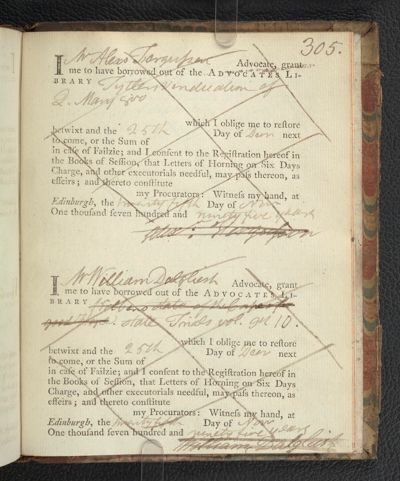 305.
I Mr Alexr Fergusson Advocate, grant
me to have borrowed out of the ADVOCATES LI-
BRARY Tytlers Vindication of
Q. Mary 8vo
which I oblige me to reſtore
betwixt and the 25th Day of Decr next
to come, or the Sum of
in caſe of Failzie; and I conſent to the Regiſtration hereof in
the Books of Seſſion, that Letters of Horning on Six Days
Charge, and other executorials needful, may paſs thereon, as
effeirs; and thereto conſtitute
my Procurators: Witneſs my hand, at
Edinburgh, the twenty fifth Day of Novr
One thouſand ſeven hundred and ninety five years
Alexr: Fergusson
I Mr William Dalgliesh Advocate, grant
me to have borrowed out of the ADVOCATES LI-
BRARY
State Trials vol. 9 & 10.
which I oblige me to reſtore
betwixt and the 25th Day of Decr next
to come, or the Sum of
in caſe of Failzie; and I conſent to the Regiſtration hereof in
the Books of Seſſion, that Letters of Horning on Six Days
Charge, and other executorials needful, may paſs thereon, as
effeirs; and thereto conſtitute
my Procurators: Witneſs my hand, at
Edinburgh, the twenty fifth Day of Novr
One thouſand ſeven hundred and ninety five years
William Dalgliesh